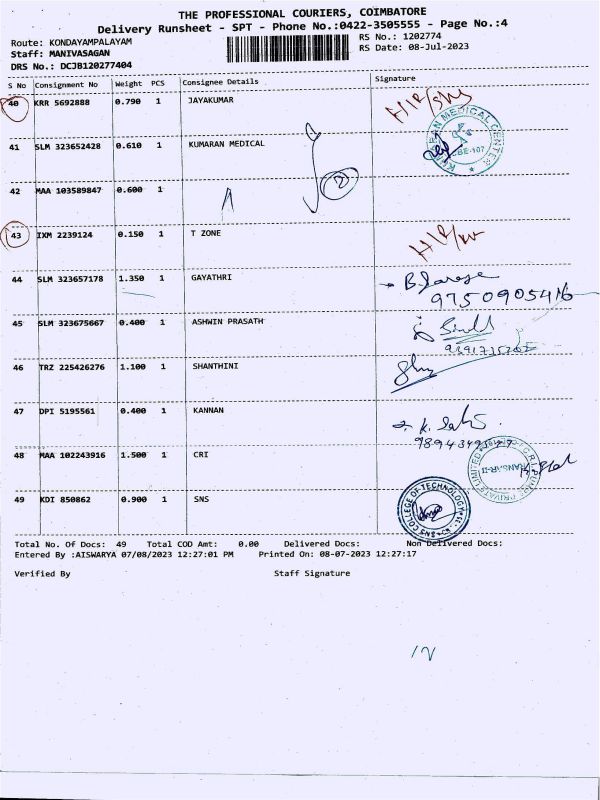 THE PROFESSIONAL COURIERS, COIMBATORE
Delivery Runsheet - SPT - Phone No.:0422-3505555 - Page No.:4
Route: KONDAYAMPALAYAM
RS No.: 1202774
Staff: MANIVASAGAN
RS Date: 08-Jul-2023
DRS No.: DCJB120277404
S No Consignment No Weight PCS Consignee Details Signature
40 KRR 5692888 0.790 1 JAYAKUMAR
41 SLM 323652428 0.610 1 KUMARAN MEDICAL
42 MAA 103589847 0.600 1
43 IXM 2239124 0.150 1 T ZONE
44 SLM 323657178 1.350 1 GAYATHRI
9750905416
45 SLM 323675667 0.400 1 ASHWIN PRASATH
46 TRZ 225426276 1.100 1 SHANTHINI
47 DPI 5195561 0.400 1 KANNAN
48 MAA 102243916 1.500 1 CRI
49 KDI 850862 0.900 1 SNS
SNS COLLEGE OF TECHNOLOGY
Total No. Of Docs: 49 Total COD Amt: 0.00 Delivered Docs: Non Delivered Docs:
Entered By :AISWARYA 07/08/2023 12:27:01 PM Printed On: 08-07-2023 12:27:17
Verified By Staff Signature